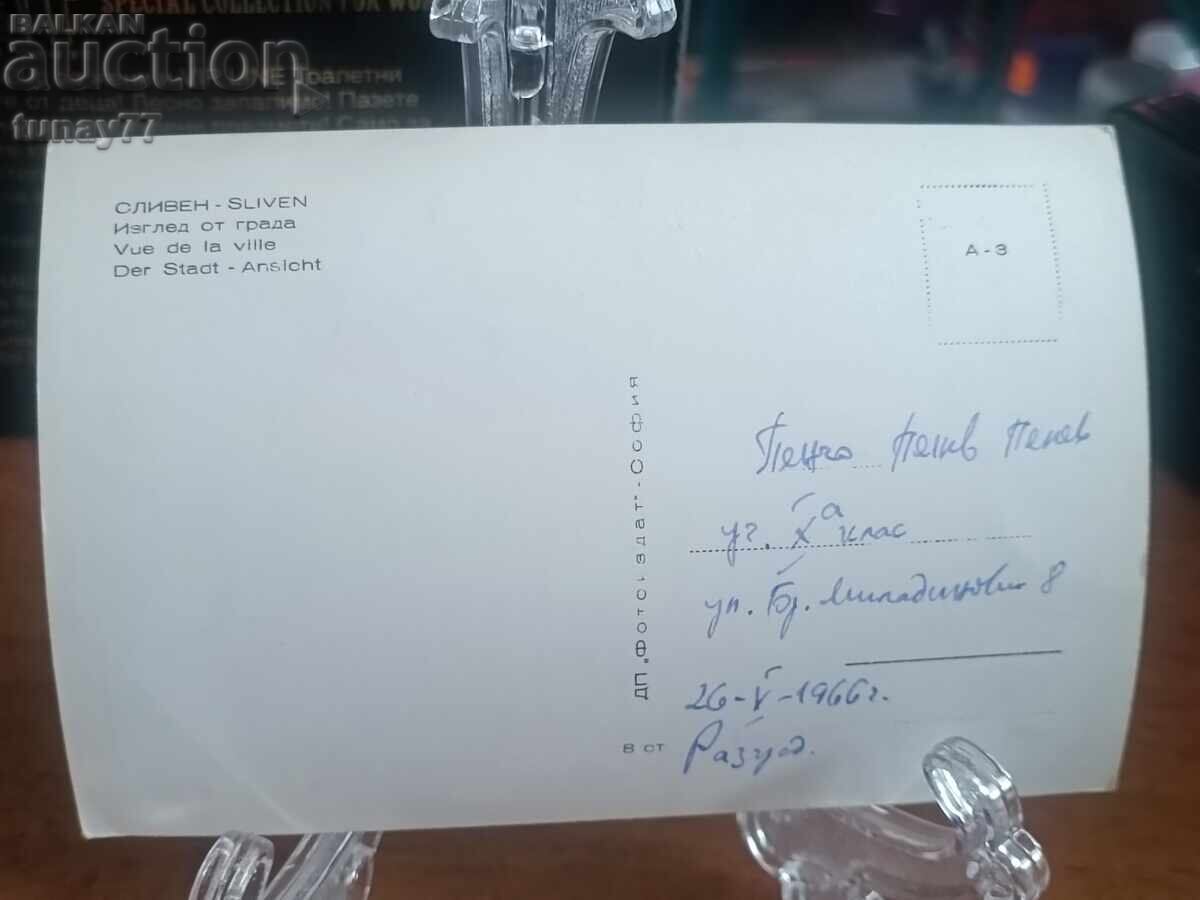 BALKAN
auction
tunay77
SPECIAL COLLECTION FOR
Тоалетни
Пазете
СЛИВЕН - SLIVEN
Изглед от града
Vue de la ville
Der Stadt - Ansicht
А - 3
ДП „Фотоиздат" - София
8 ст
Пенчо Пенев Пенев
уч. Xа клас
ул. Бр. Миладинови 8
26-V-1966г.
Разград.